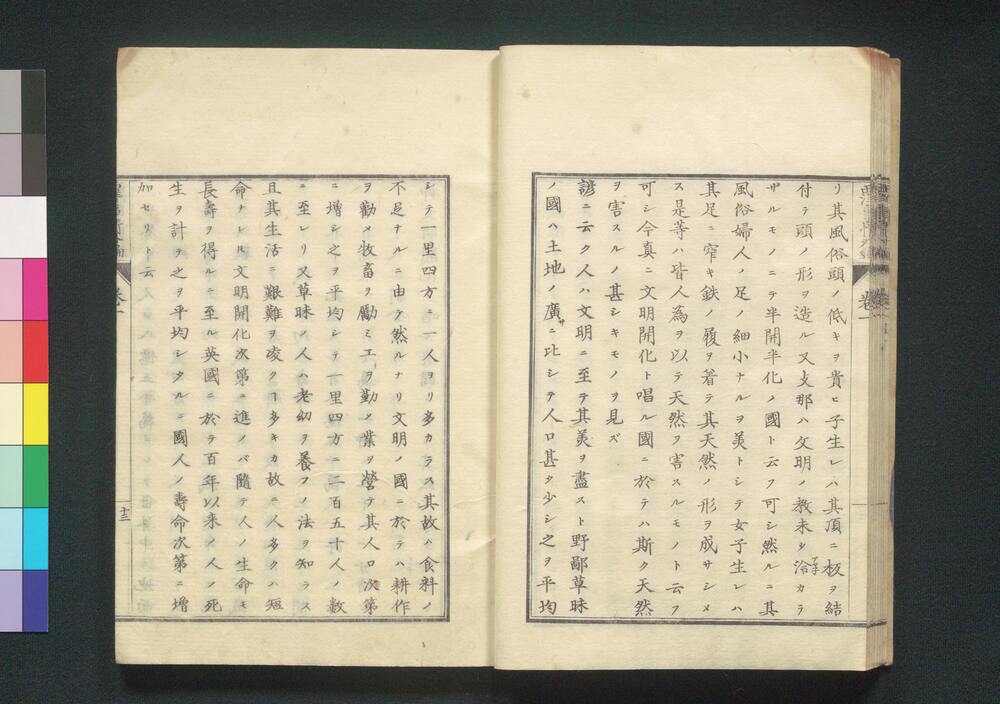 リ其風俗頭ノ低キヲ貴ヒ子生レハ其頂ニ板ヲ結
付テ頭ノ形ヲ造ル又支那ハ文明ノ教未タ洽カラ
サルモノニテ半開半化ノ國ト云フ可シ然ルニ其
風俗婦人ノ足ノ細小ナルヲ美トシテ女子生レハ
其足ニ窄キ鉄ノ履ヲ著テ其天然ノ形ヲ成サシメ
ス是等ハ皆人為ヲ以テ天然ヲ害スルモノト云フ
可シ今真ニ文明開化ト唱ル國ニ於テハ斯ク天然
ヲ害スルノ甚シキモノヲ見ズ
諺ニ云ク人ハ文明ニ至テ其美ヲ盡スト野鄙草昧
ノ國ハ土地ノ廣サニ比シテ人口甚タ少シ之ヲ平均
シテ一里四方ニ一人ヨリ多カラス其故ハ食料ノ
不足ナルニ由テ然ルナリ文明ノ國ニ於テハ耕作
ヲ勸メ牧畜ヲ勵ミ工ヲ勤メ業ヲ營テ其人口次第
ニ増シ之ヲ平均シテ一里四方ニ二百五十人ノ數
ニ至レリ又草昧ノ人ハ老幼ヲ養フノ法ヲ知ラス
且其生活ニ艱難ヲ凌クヿ多キカ故ニ人多クハ短
命ナレ𪜈文明開化次第ニ進ノバ隨テ人ノ生命モ
長壽ヲ得ルニ至ル英國ニ於テ百年以来ノ人ノ死
生ヲ計テ之ヲ平均シタルニ國人ノ壽命次第ニ増
加セリト云
卷一
十三